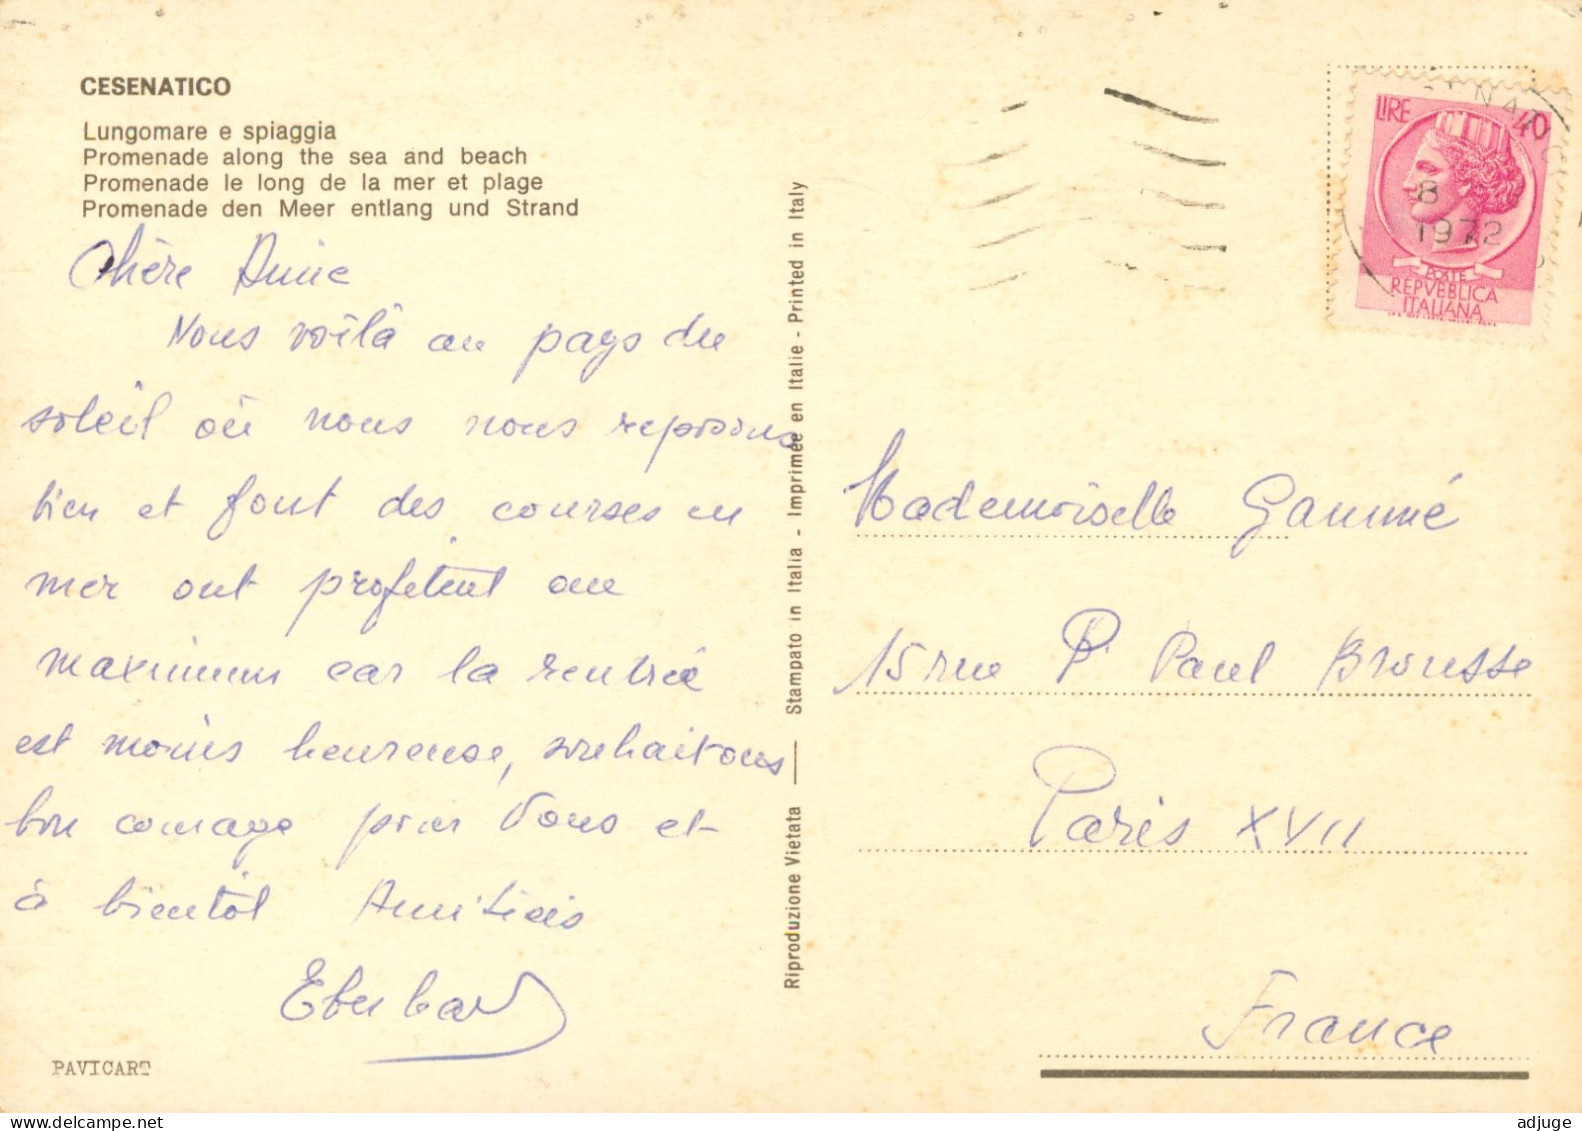 CESENATICO
Lungomare e spiaggia
Promenade along the sea and beach
Promenade le long de la mer et plage
Promenade den Meer entlang und Strand
Chère Annie
Nous voilà au pays du
soleil où nous nous reposons
bien et font des courses en
mer ont profitent au
maximum car la rentrée
est moins heureuse, souhaitons
bon courage pour Vous et
à bientôt Amitiés
PAVICART
Riproduzione Vietata — Stampato in Italia - Imprimée en Italie - Printed in Italy
LIRE 40
8
1972
POSTE
REPVBBLICA
ITALIANA
Mademoiselle Gammé
15 rue Paul Brousse
Paris XVII
France
adjuge
www.delcampe.net